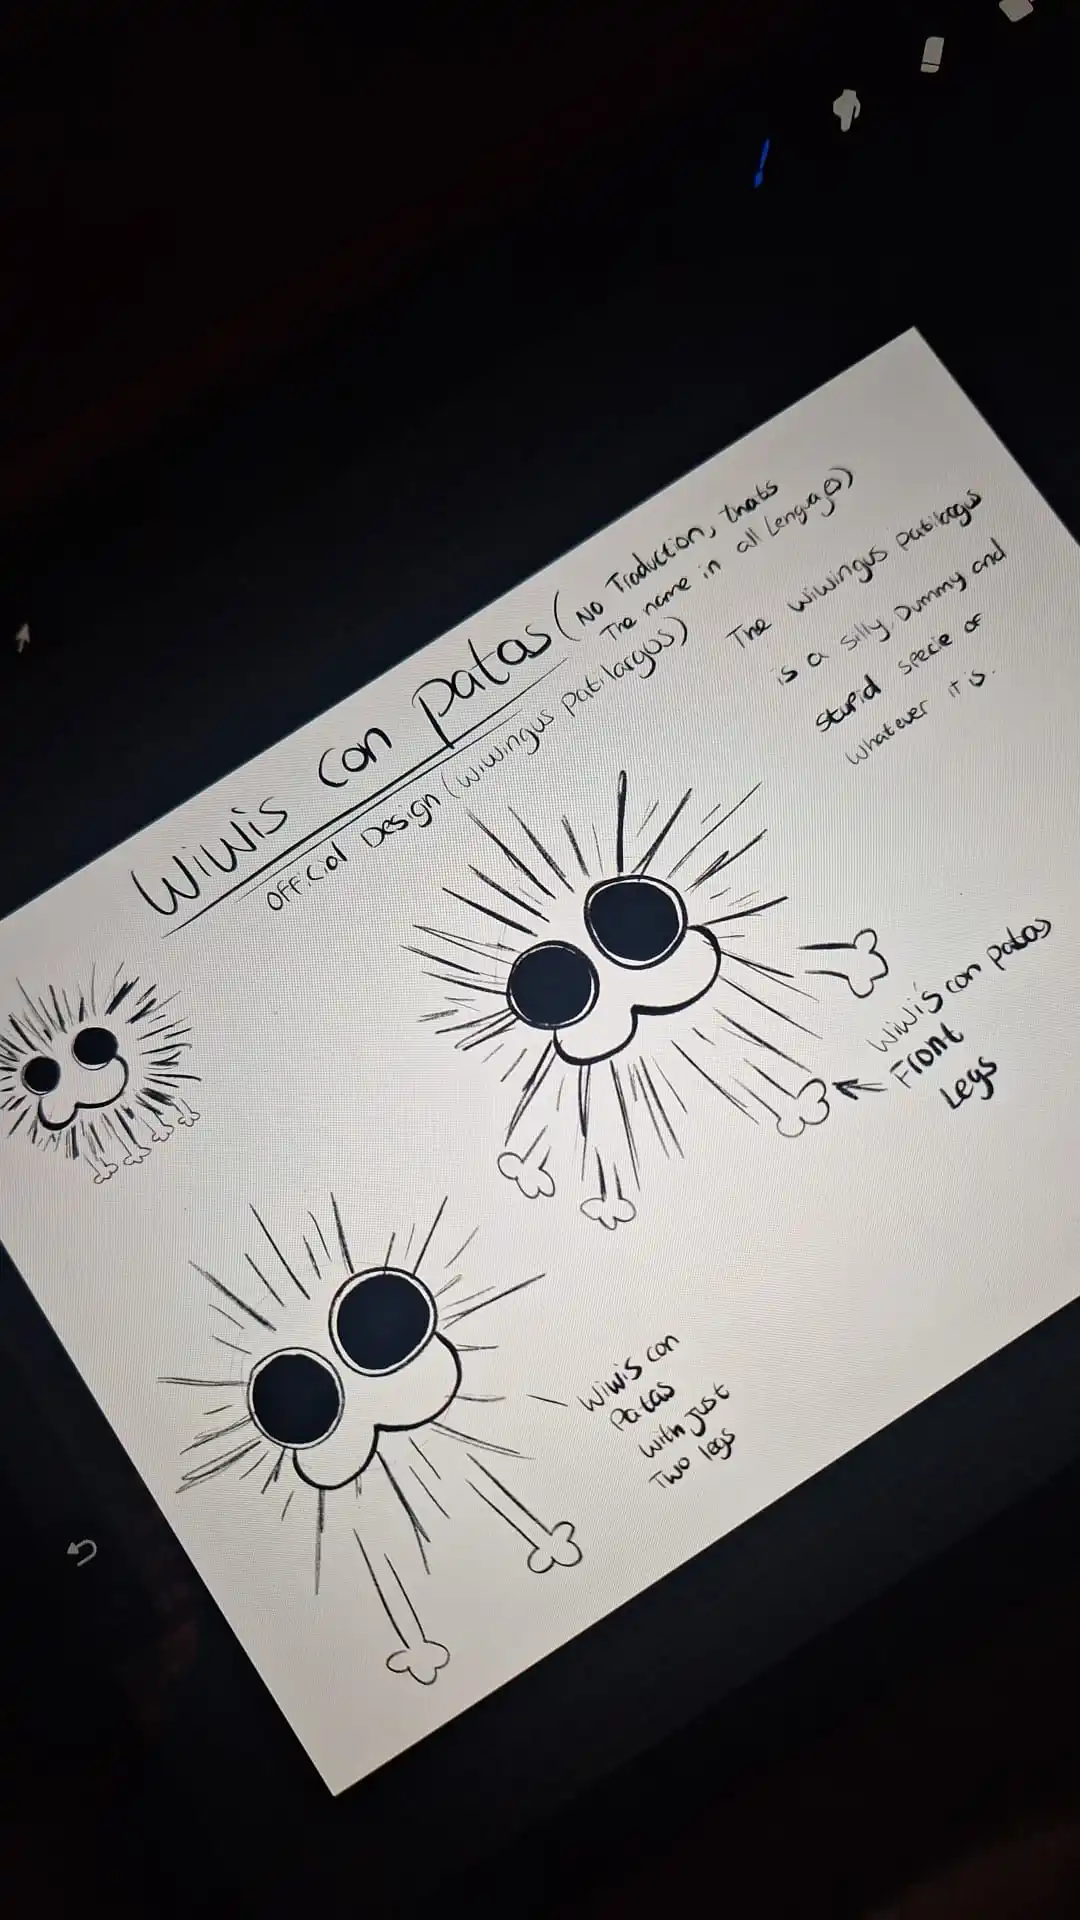 Wiwis con patas (No Traduction, thats
The name in all Lenguages)
Official Design (Wiwingus patilargus)
The wiwingus patilargus
is a silly, Dummy and
stupid specie of
whatever it is.
Wiwis con patas
Front
Legs
Wiwis con
Patas
with just
Two legs